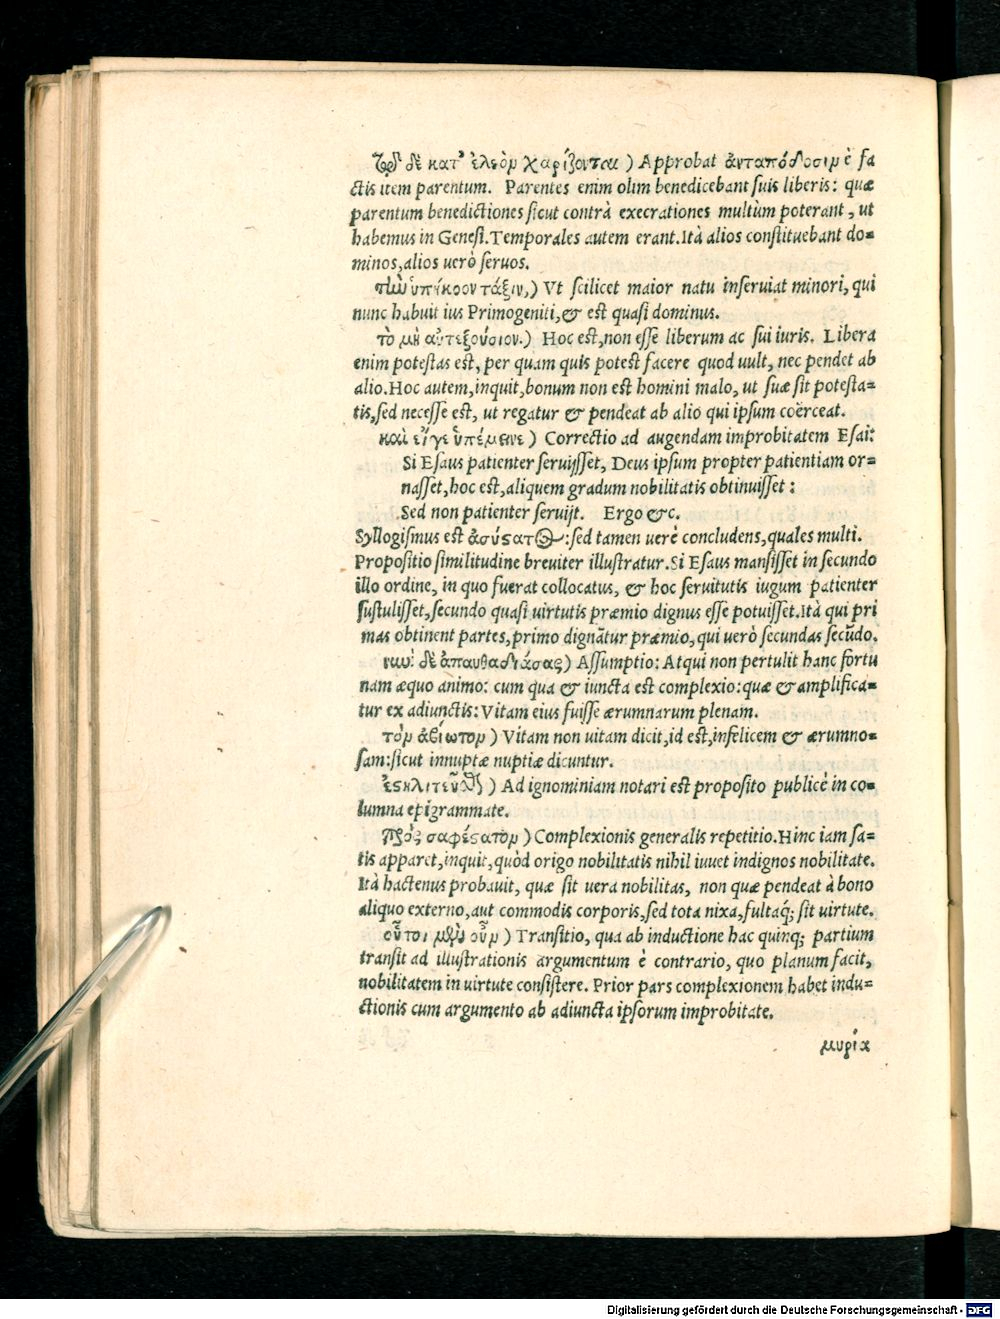 τῷ δὲ κατ' ἔλεον χαρίζονται) Approbat ἀνταπόδοσιν è fa
ctis item parentum. Parentes enim olim benedicebant suis liberis: quæ
parentum benedictiones sicut contrà execrationes multùm poterant, ut
habemus in Genesi. Temporales autem erant. Ità alios constituebant do=
minos, alios uerò seruos.
τὴν ὑπήκοον τάξιν,) Vt scilicet maior natu inseruiat minori, qui
nunc habuit ius Primogeniti, & est quasi dominus.
τὸ μὴ αὐτεξούσιον.) Hoc est, non esse liberum ac sui iuris. Libera
enim potestas est, per quam quis potest facere quod uult, nec pendet ab
alio. Hoc autem, inquit, bonum non est homini malo, ut suæ sit potesta=
tis, sed necesse est, ut regatur & pendeat ab alio qui ipsum coërceat.
καὶ εἴγε ὑπέμεινε) Correctio ad augendam improbitatem Esai:
Si Esaus patienter seruijsset, Deus ipsum propter patientiam or=
nasset, hoc est, aliquem gradum nobilitatis obtinuisset:
Sed non patienter seruijt. Ergo &c.
Syllogismus est ἀσύστατος: sed tamen uerè concludens, quales multi.
Propositio similitudine breuiter illustratur. Si Esaus mansisset in secundo
illo ordine, in quo fuerat collocatus, & hoc seruitutis iugum patienter
sustulisset, secundo quasi uirtutis præmio dignus esse potuisset. Ità qui pri
mas obtinent partes, primo dignãtur præmio, qui uerò secundas secũdo.
δὲ ἀπαυθαδιάσας) Assumptio: Atqui non pertulit hanc fortu
nam æquo animo: cum qua & iuncta est complexio: quæ & amplifica=
tur ex adiunctis: Vitam eius fuisse ærumnarum plenam.
τὸν ἀβίωτον) Vitam non uitam dicit, id est, infelicem & ærumno=
sam: sicut innuptæ nuptiæ dicuntur.
ἐστηλιτεῦσθαι) Ad ignominiam notari est proposito publicè in co=
lumna epigrammate.
πρὸς σαφέστατον) Complexionis generalis repetitio. Hinc iam sa=
tis apparet, inquit, quòd origo nobilitatis nihil iuuet indignos nobilitate.
Ità hactenus probauit, quæ sit uera nobilitas, non quæ pendeat à bono
aliquo externo, aut commodis corporis, sed tota nixa, fultaq; sit uirtute.
οὗτοι μὲν οὖν) Transitio, qua ab inductione hac quinq; partium
transit ad illustrationis argumentum è contrario, quo planum facit,
nobilitatem in uirtute consistere. Prior pars complexionem habet indu=
ctionis cum argumento ab adiuncta ipsorum improbitate.
μυρία
Digitalisierung gefördert durch die Deutsche Forschungsgemeinschaft - DFG